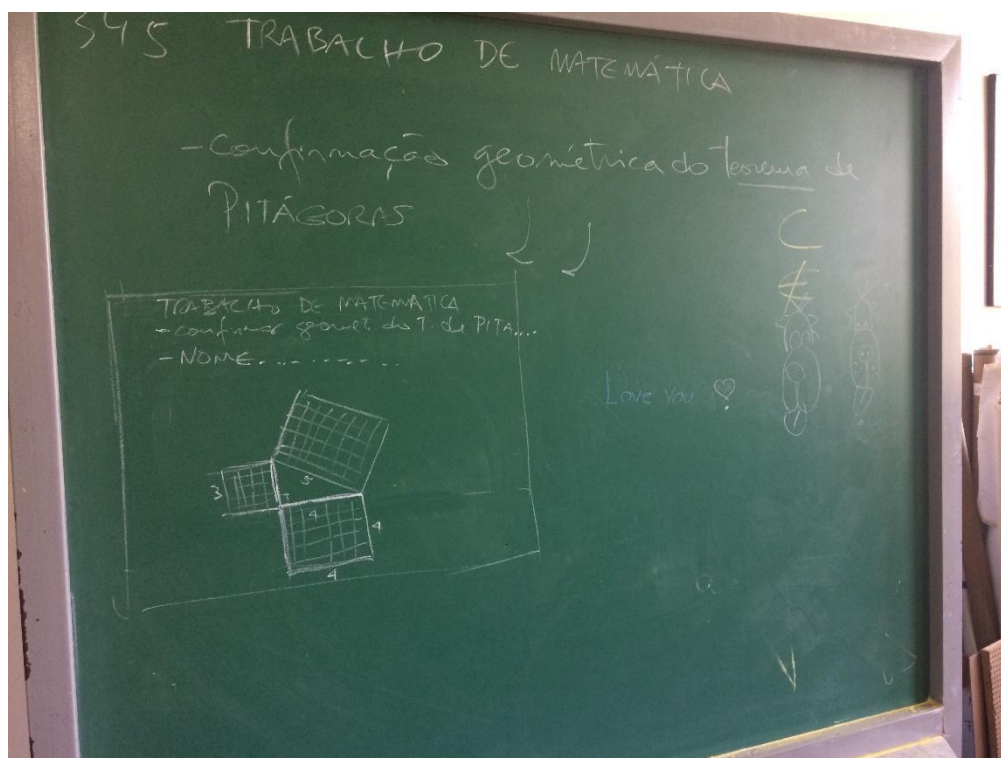 345 TRABALHO DE MATEMÁTICA
- Confirmação geométrica do teorema de
PITÁGORAS
C
TRABALHO DE MATEMÁTICA
- confirmar geomet. do T. de PITA....
- NOME..........
Love you
5
3
4
4
4